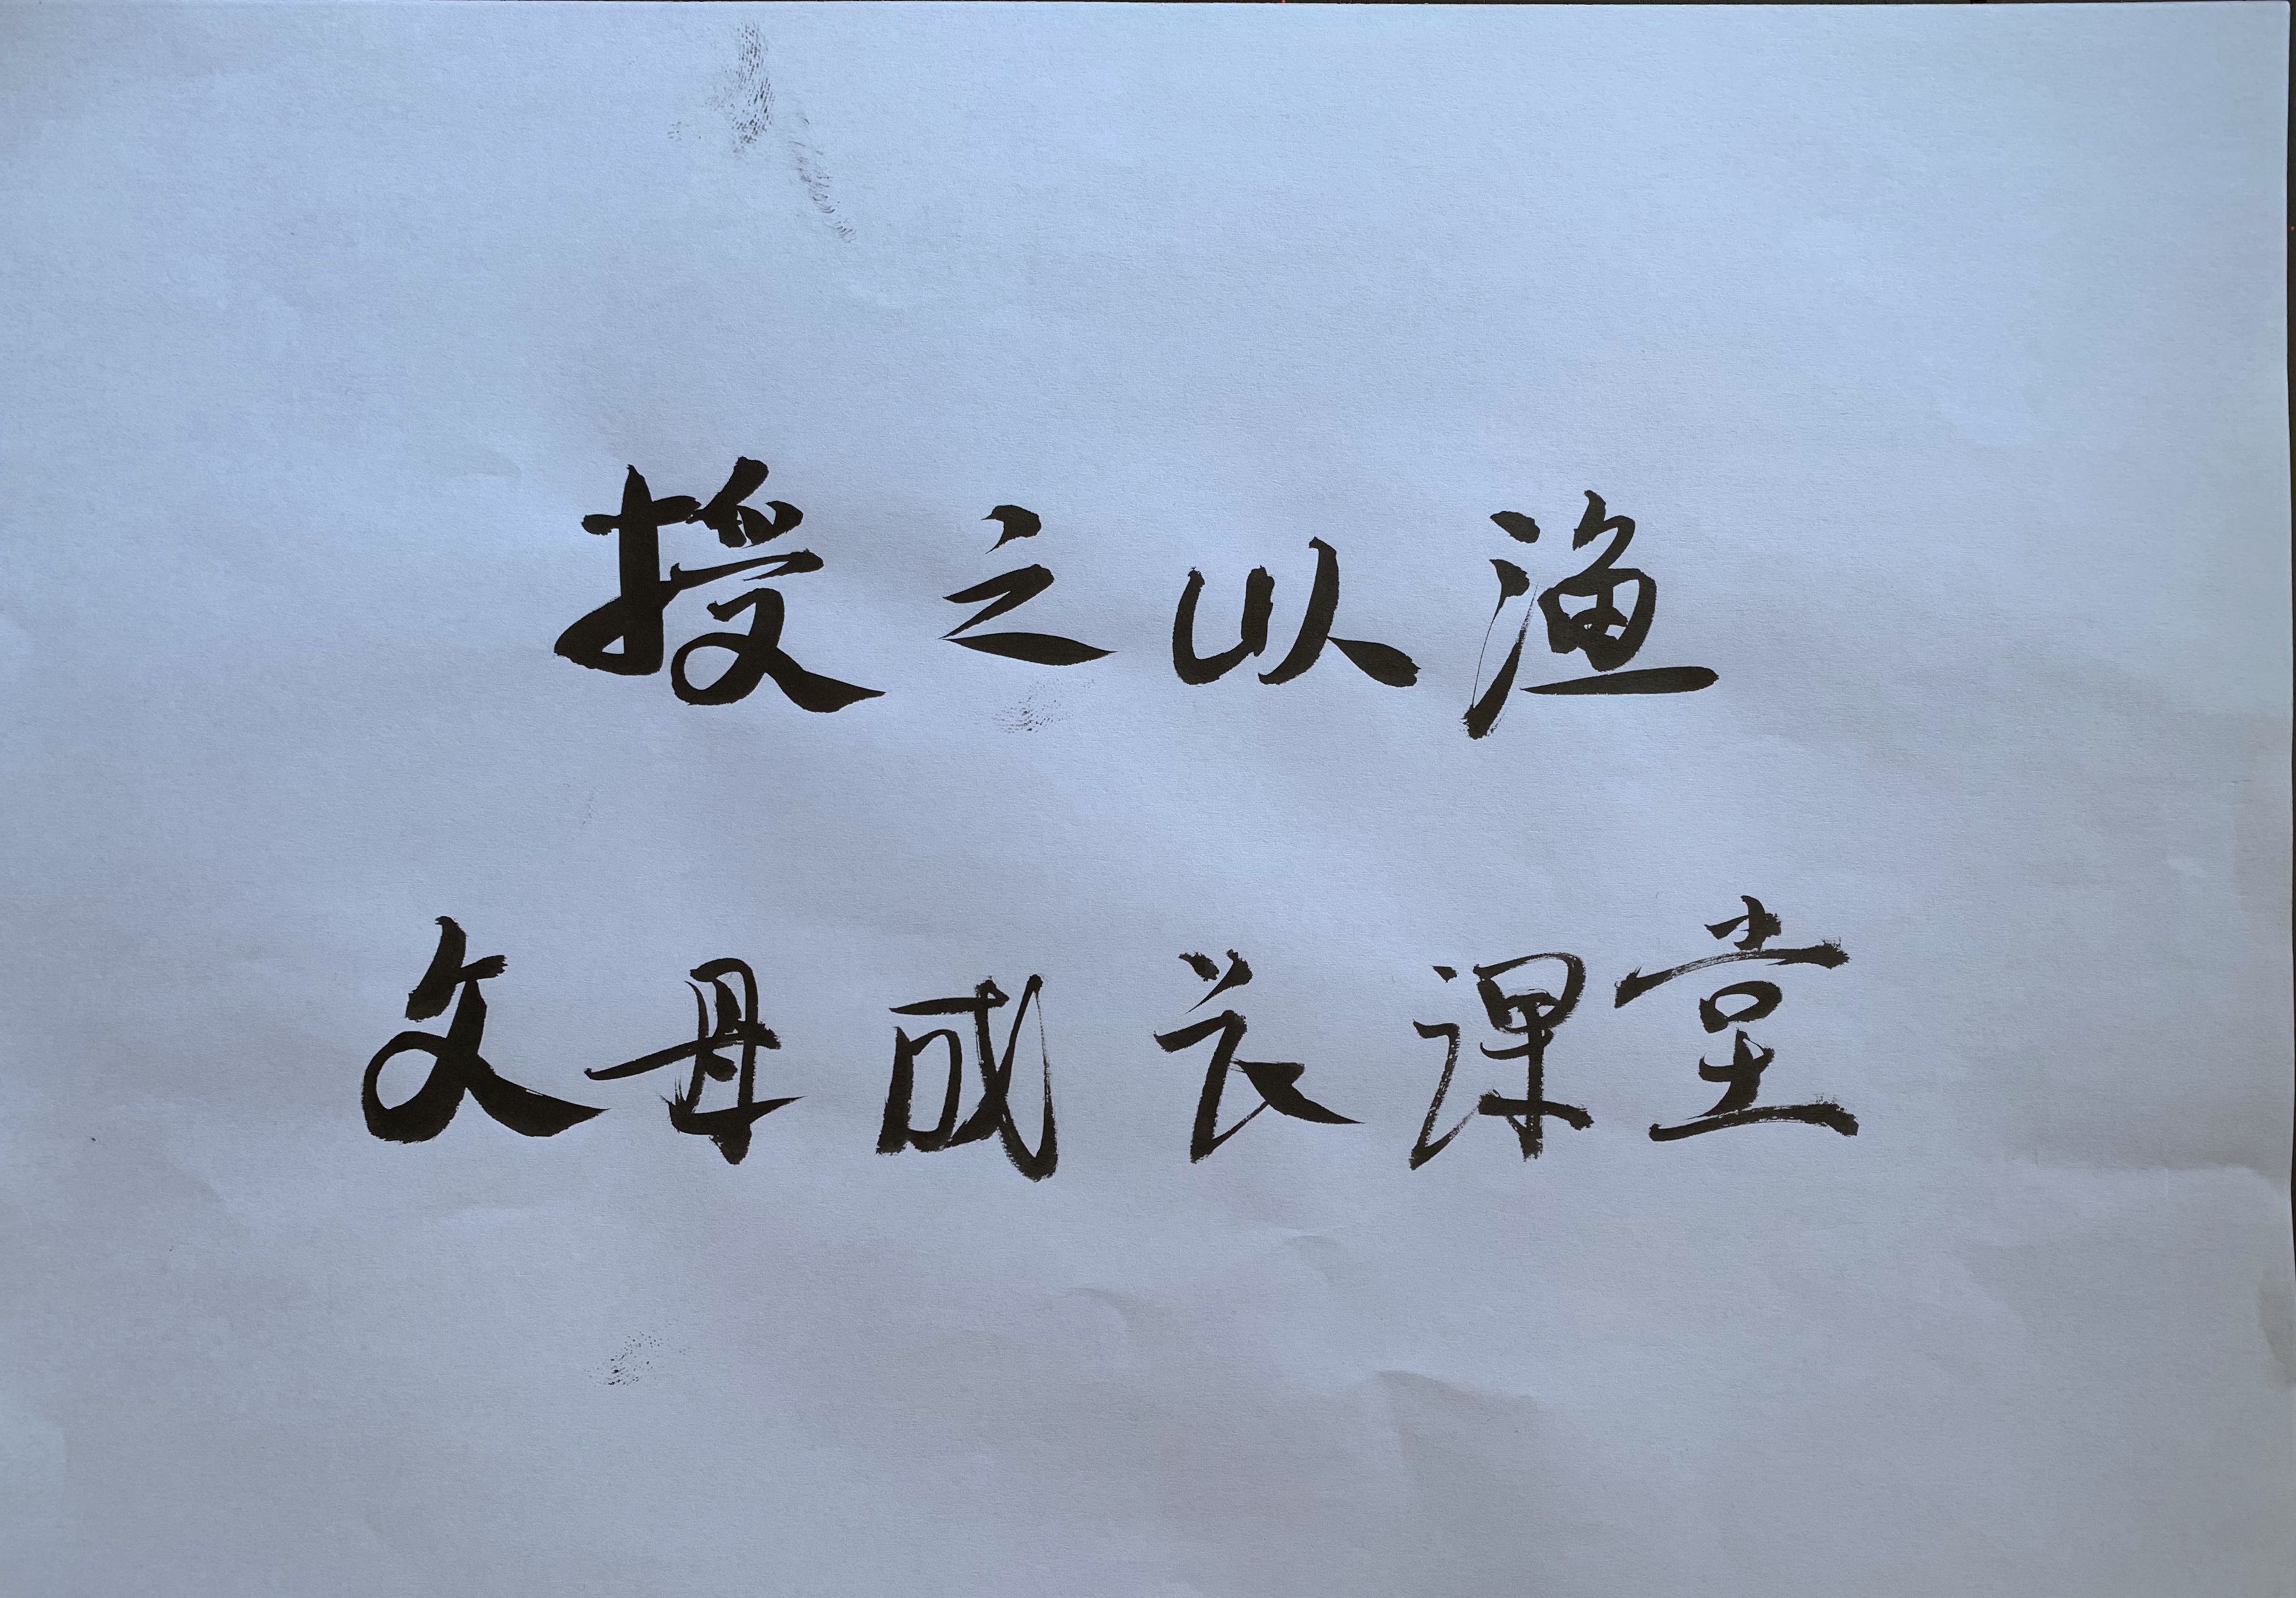 授之以渔
父母成长课堂